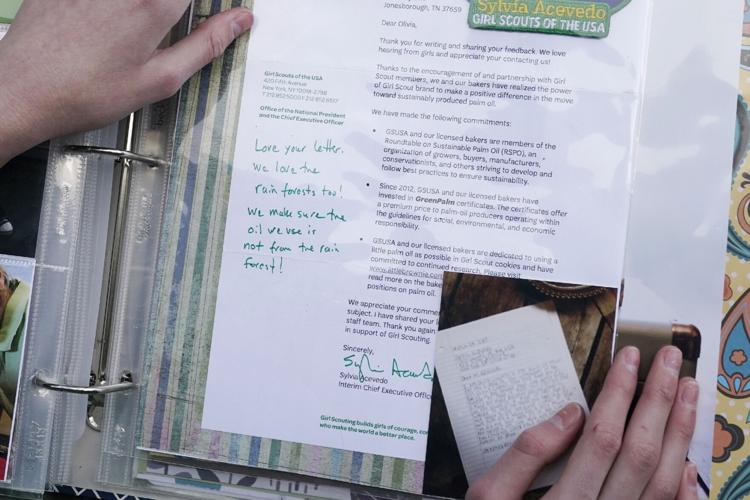 Jonesborough, TN 37659
Sylvia Acevedo
GIRL SCOUTS OF THE USA
Dear Olivia,
Thank you for writing and sharing your feedback. We love
hearing from girls and appreciate your contacting us!
Thanks to the encouragement of and partnership with Girl
Scout members, we and our bakers have realized the power
of Girl Scout brand to make a positive difference in the move
toward sustainably produced palm oil.
We have made the following commitments:
• GSUSA and our licensed bakers are members of the
Roundtable on Sustainable Palm Oil (RSPO), an
organization of growers, buyers, manufacturers,
conservationists, and others striving to develop and
follow best practices to ensure sustainability.
• Since 2012, GSUSA and our licensed bakers have
invested in GreenPalm certificates. The certificates offer
a premium price to palm-oil producers operating within
the guidelines for social, environmental, and economic
responsibility.
• GSUSA and our licensed bakers are dedicated to using as
little palm oil as possible in Girl Scout cookies and have
committed to continued research. Please visit
www.littlebrownie.com
read more on the bake
positions on palm oil.
We appreciate your comme
subject. I have shared your
staff team. Thank you again
in support of Girl Scouting.
Sincerely,
Sylvia Acevedo
Sylvia Acevedo
Interim Chief Executive Office
Girl Scouts of the USA
420 Fifth Avenue
New York, NY 10018-2798
Office of the National President
and the Chief Executive Officer
Love your letter.
We love the
rain forests too!
We make sure the
oil we use is
not from the rain
forest!
Girl Scouting builds girls of courage, co
who make the world a better place.